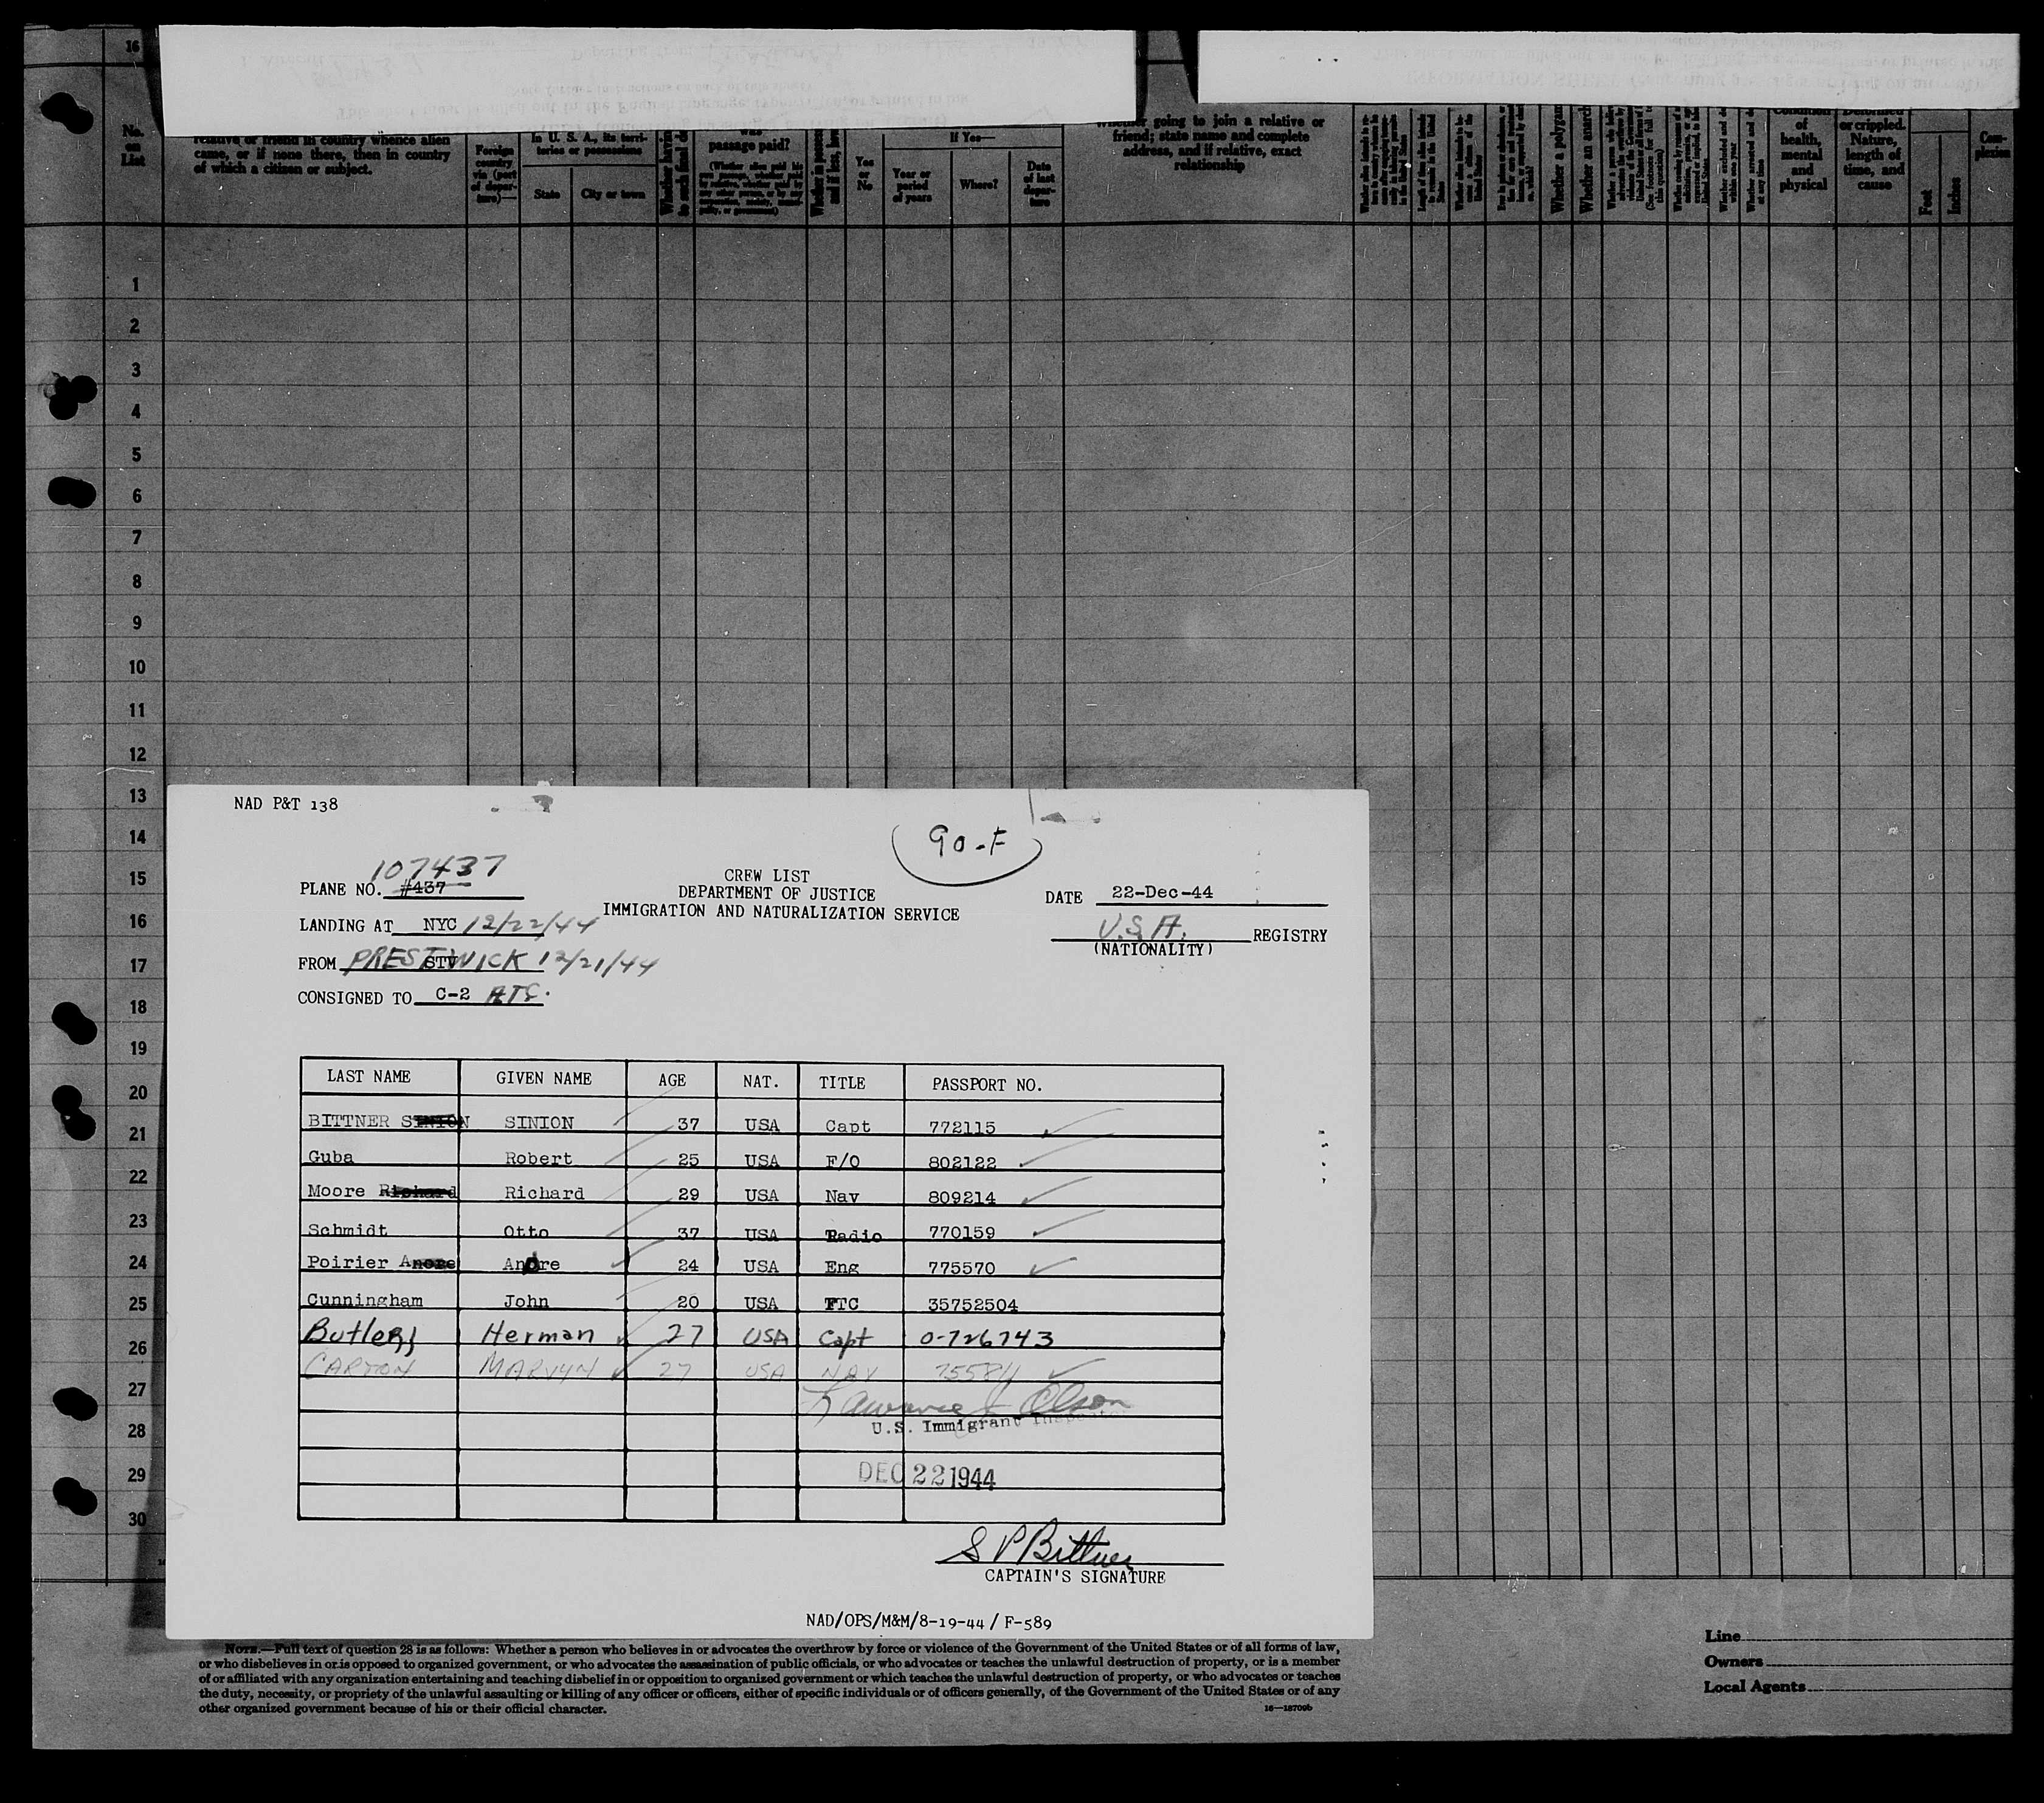 16
No. on List
relative or friend in country whence alien came, or if none there, then in country of which a citizen or subject.
Foreign country via (port of departure)—
In U. S. A., its territories or possessions
State
City or town
passage paid?
Yes or No
If Yes—
Year or period of years
Where?
Date of last departure
Whether going to join a relative or friend; state name and complete address, and if relative, exact relationship
Whether a polygam
Whether an anarch
Condition of health, mental and physical
Deformed or crippled. Nature, length of time, and cause
Feet
Inches
Complexion
1
2
3
4
5
6
7
8
9
10
11
12
13
14
15
16
17
18
19
20
21
22
23
24
25
26
27
28
29
30
NAD P&T 138
90-F
107437
PLANE NO. #437
CREW LIST
DEPARTMENT OF JUSTICE
IMMIGRATION AND NATURALIZATION SERVICE
DATE 22-Dec-44
LANDING AT NYC 12/22/44
U.S.A. REGISTRY
(NATIONALITY)
FROM STV PRESTWICK 12/21/44
CONSIGNED TO C-2 ATC.
LAST NAME GIVEN NAME AGE NAT. TITLE PASSPORT NO.
BITTNER SINION SINION 37 USA Capt 772115
Guba Robert 25 USA F/O 802122
Moore Richard Richard 29 USA Nav 809214
Schmidt Otto 37 USA Radio 770159
Poirier Andre Andre 24 USA Eng 775570
Cunningham John 20 USA 35752504
Butler Herman 27 USA Capt 0-726743
CARTON MARVYN 27 USA NAV
Lawrence J Olson
U.S. Immigrant Inspector
DEC 22 1944
S P Bittner
CAPTAIN'S SIGNATURE
NAD/OPS/M&M/8-19-44 / F-589
NOTE.—Full text of question 28 is as follows: Whether a person who believes in or advocates the overthrow by force or violence of the Government of the United States or of all forms of law,
or who disbelieves in or is opposed to organized government, or who advocates the assassination of public officials, or who advocates or teaches the unlawful destruction of property, or is a member
of or affiliated with any organization entertaining and teaching disbelief in or opposition to organized government or which teaches the unlawful destruction of property, or who advocates or teaches
the duty, necessity, or propriety of the unlawful assaulting or killing of any officer or officers, either of specific individuals or of officers generally, of the Government of the United States or of any
other organized government because of his or their official character.
16—18709b
Line
Owners
Local Agents